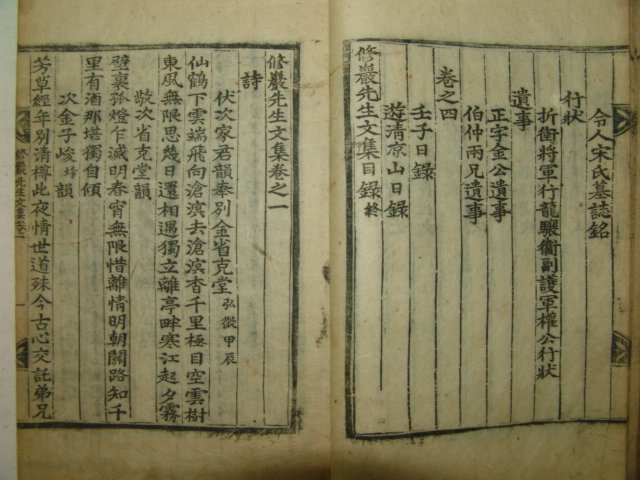 令人宋氏墓誌銘
行狀
折衝將軍行龍驤衛副護軍權公行狀
遺事
正字金公遺事
伯仲兩兄遺事
卷之四
壬子日錄
遊清凉山日錄
修巖先生文集目錄 終
修巖先生文集卷之一
詩
伏次家君韻奉別金省克堂 弘微 甲辰
仙鶴下雲端飛向滄溟去滄溟杳千里極目空雲樹
東風無限思幾日還相遇獨立離亭畔寒江起夕霧
敬次省克堂韻
壁裏孤燈乍滅明春宵無限惜離情明朝關路知千
里有酒那堪獨自傾
次金子峻 韻
芳草經年別清樽此夜情世道殊今古心交託弟兄
修巖先生文集卷一
一